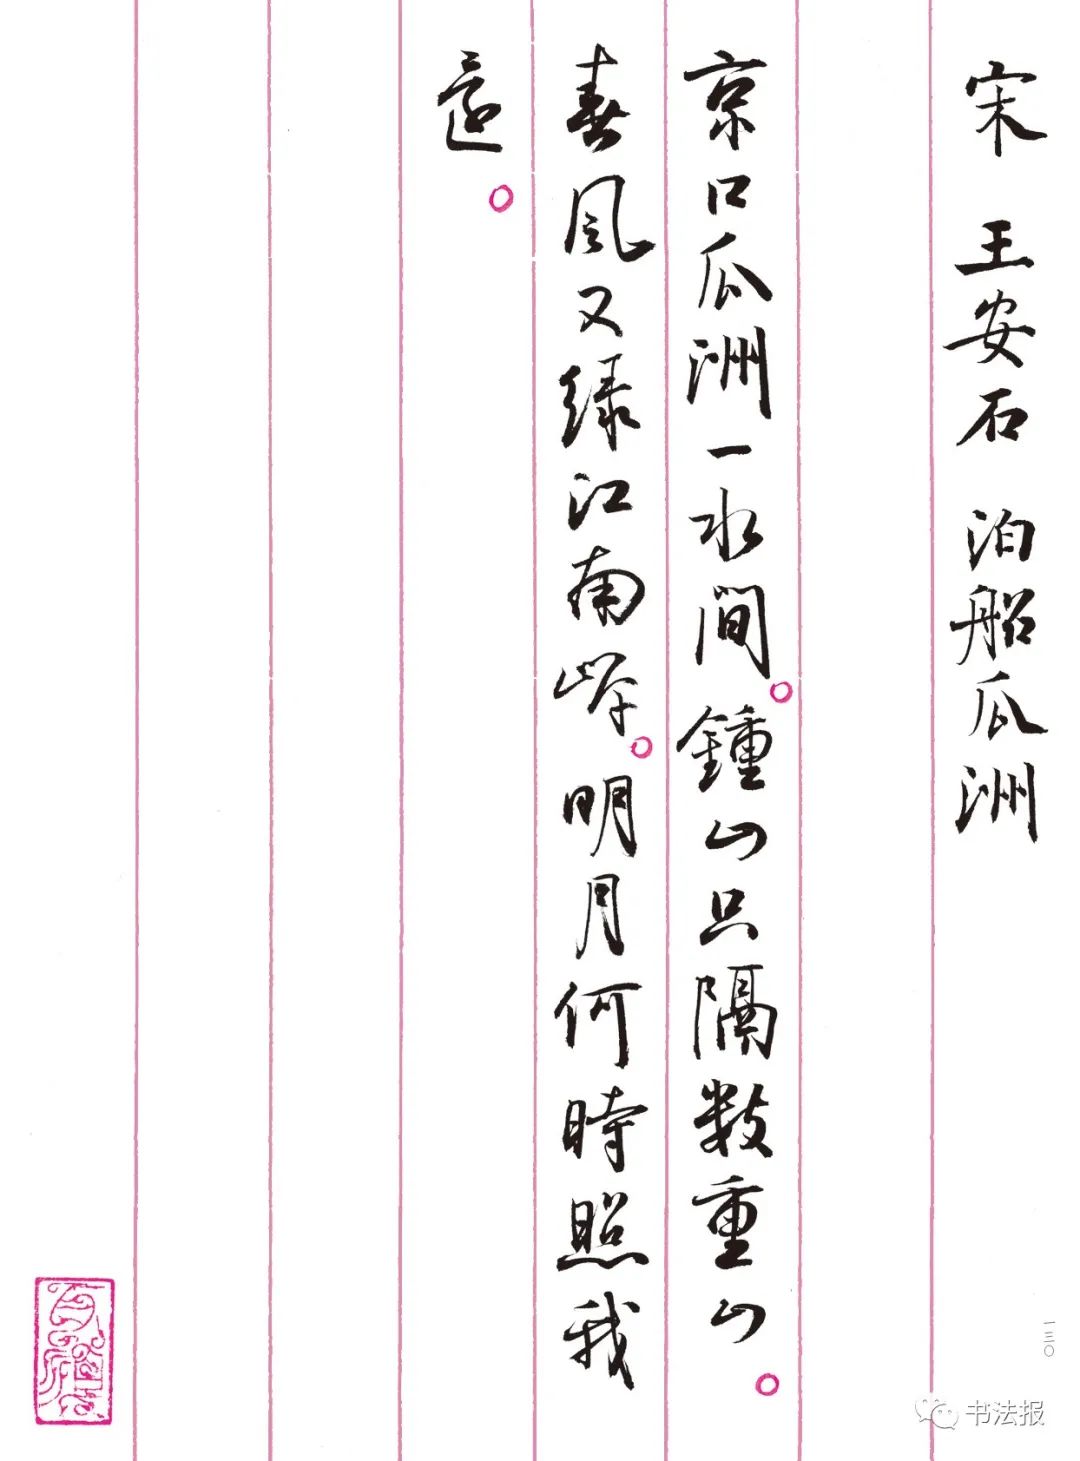 宋 王安石 泊船瓜洲
京口瓜洲一水间。鍾山只隔数重山。
春风又绿江南岸。明月何時照我
還。
一三〇
书法报